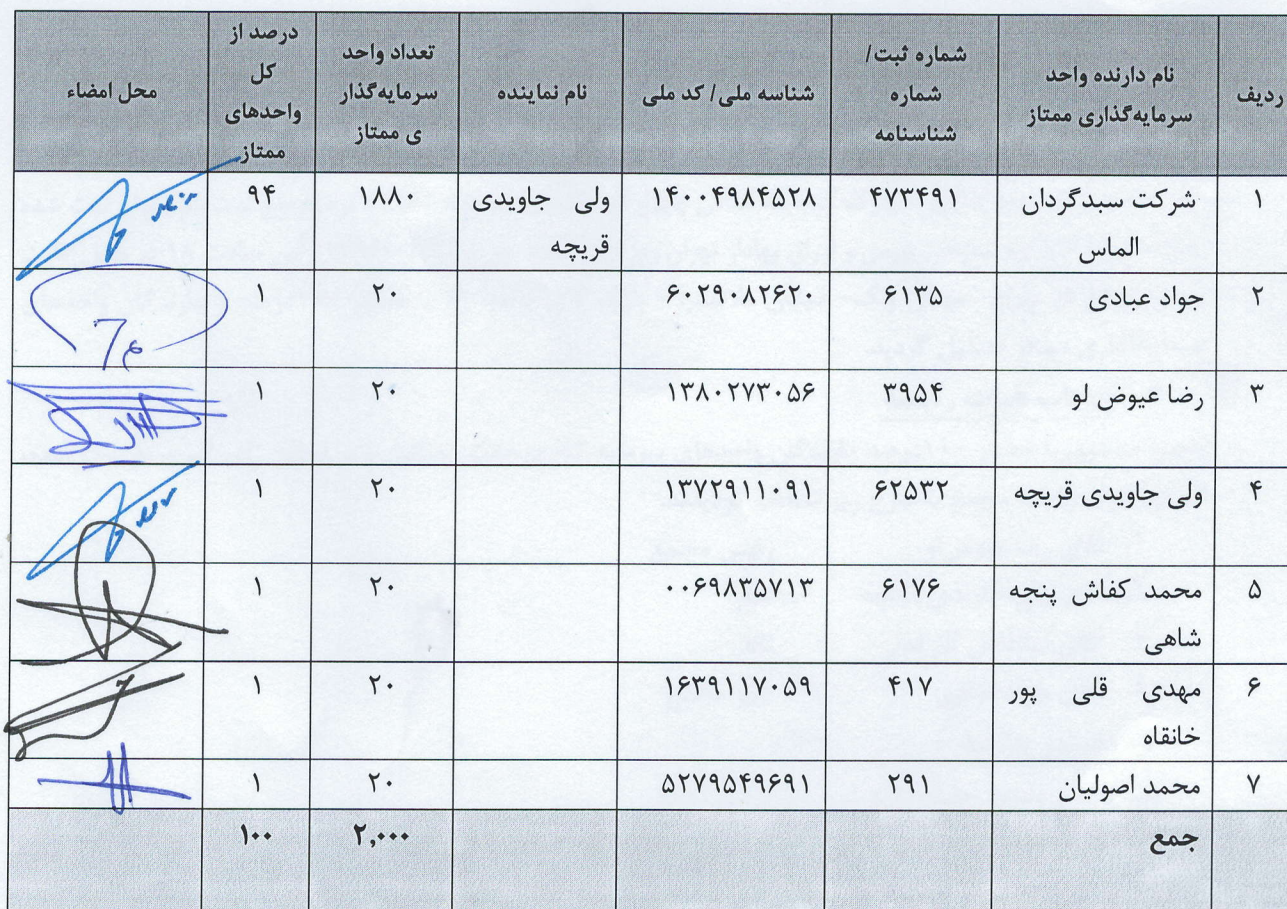 ردیف
نام دارنده واحد
سرمایه‌گذاری ممتاز
شماره ثبت/
شماره
شناسنامه
شناسه ملی/ کد ملی
نام نماینده
تعداد واحد
سرمایه‌گذار
ی ممتاز
درصد از
کل
واحدهای
ممتاز
محل امضاء
۱ شرکت سبدگردان ۴۷۳۴۹۱ ۱۴۰۰۴۹۸۴۵۲۸ ولی جاویدی ۱۸۸۰ ۹۴
الماس قریچه
۲ جواد عبادی ۶۱۳۵ ۶۰۲۹۰۸۲۶۲۰ ۲۰ ۱
۳ رضا عیوض لو ۳۹۵۴ ۱۳۸۰۲۷۳۰۵۶ ۲۰ ۱
۴ ولی جاویدی قریچه ۶۲۵۳۲ ۱۳۷۲۹۱۱۰۹۱ ۲۰ ۱
۵ محمد کفاش پنجه ۶۱۷۶ ۰۰۶۹۸۳۵۷۱۳ ۲۰ ۱
شاهی
۶ مهدی قلی پور ۴۱۷ ۱۶۳۹۱۱۷۰۵۹ ۲۰ ۱
خانقاه
۷ محمد اصولیان ۲۹۱ ۵۲۷۹۵۴۹۶۹۱ ۲۰ ۱
جمع ۲,۰۰۰ ۱۰۰